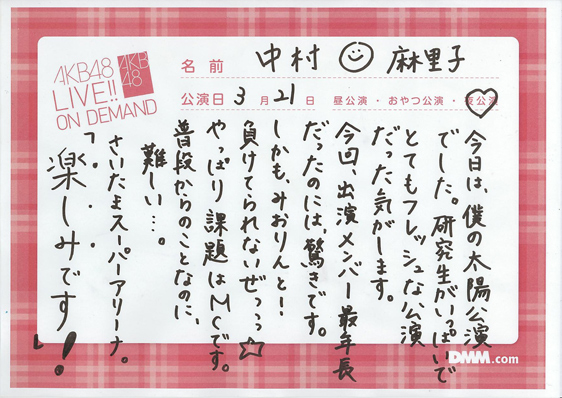 AKB48
LIVE!!
ON DEMAND
AKB
48
名前 中村 麻里子
公演日 3月21日 昼公演・おやつ公演・夜公演
今日は、僕の太陽公演
でした。研究生がいっぱいで
とてもフレッシュな公演
だった気がします。
今回、出演メンバー最年長
だったのには、驚きです。
しかも、みおりんと…
負けてられないぜっっ☆
やっぱり課題はMCです。
普段からのことなのに、
難しい…。
さいたまスーパーアリーナ。
楽しみです!
DMM.com